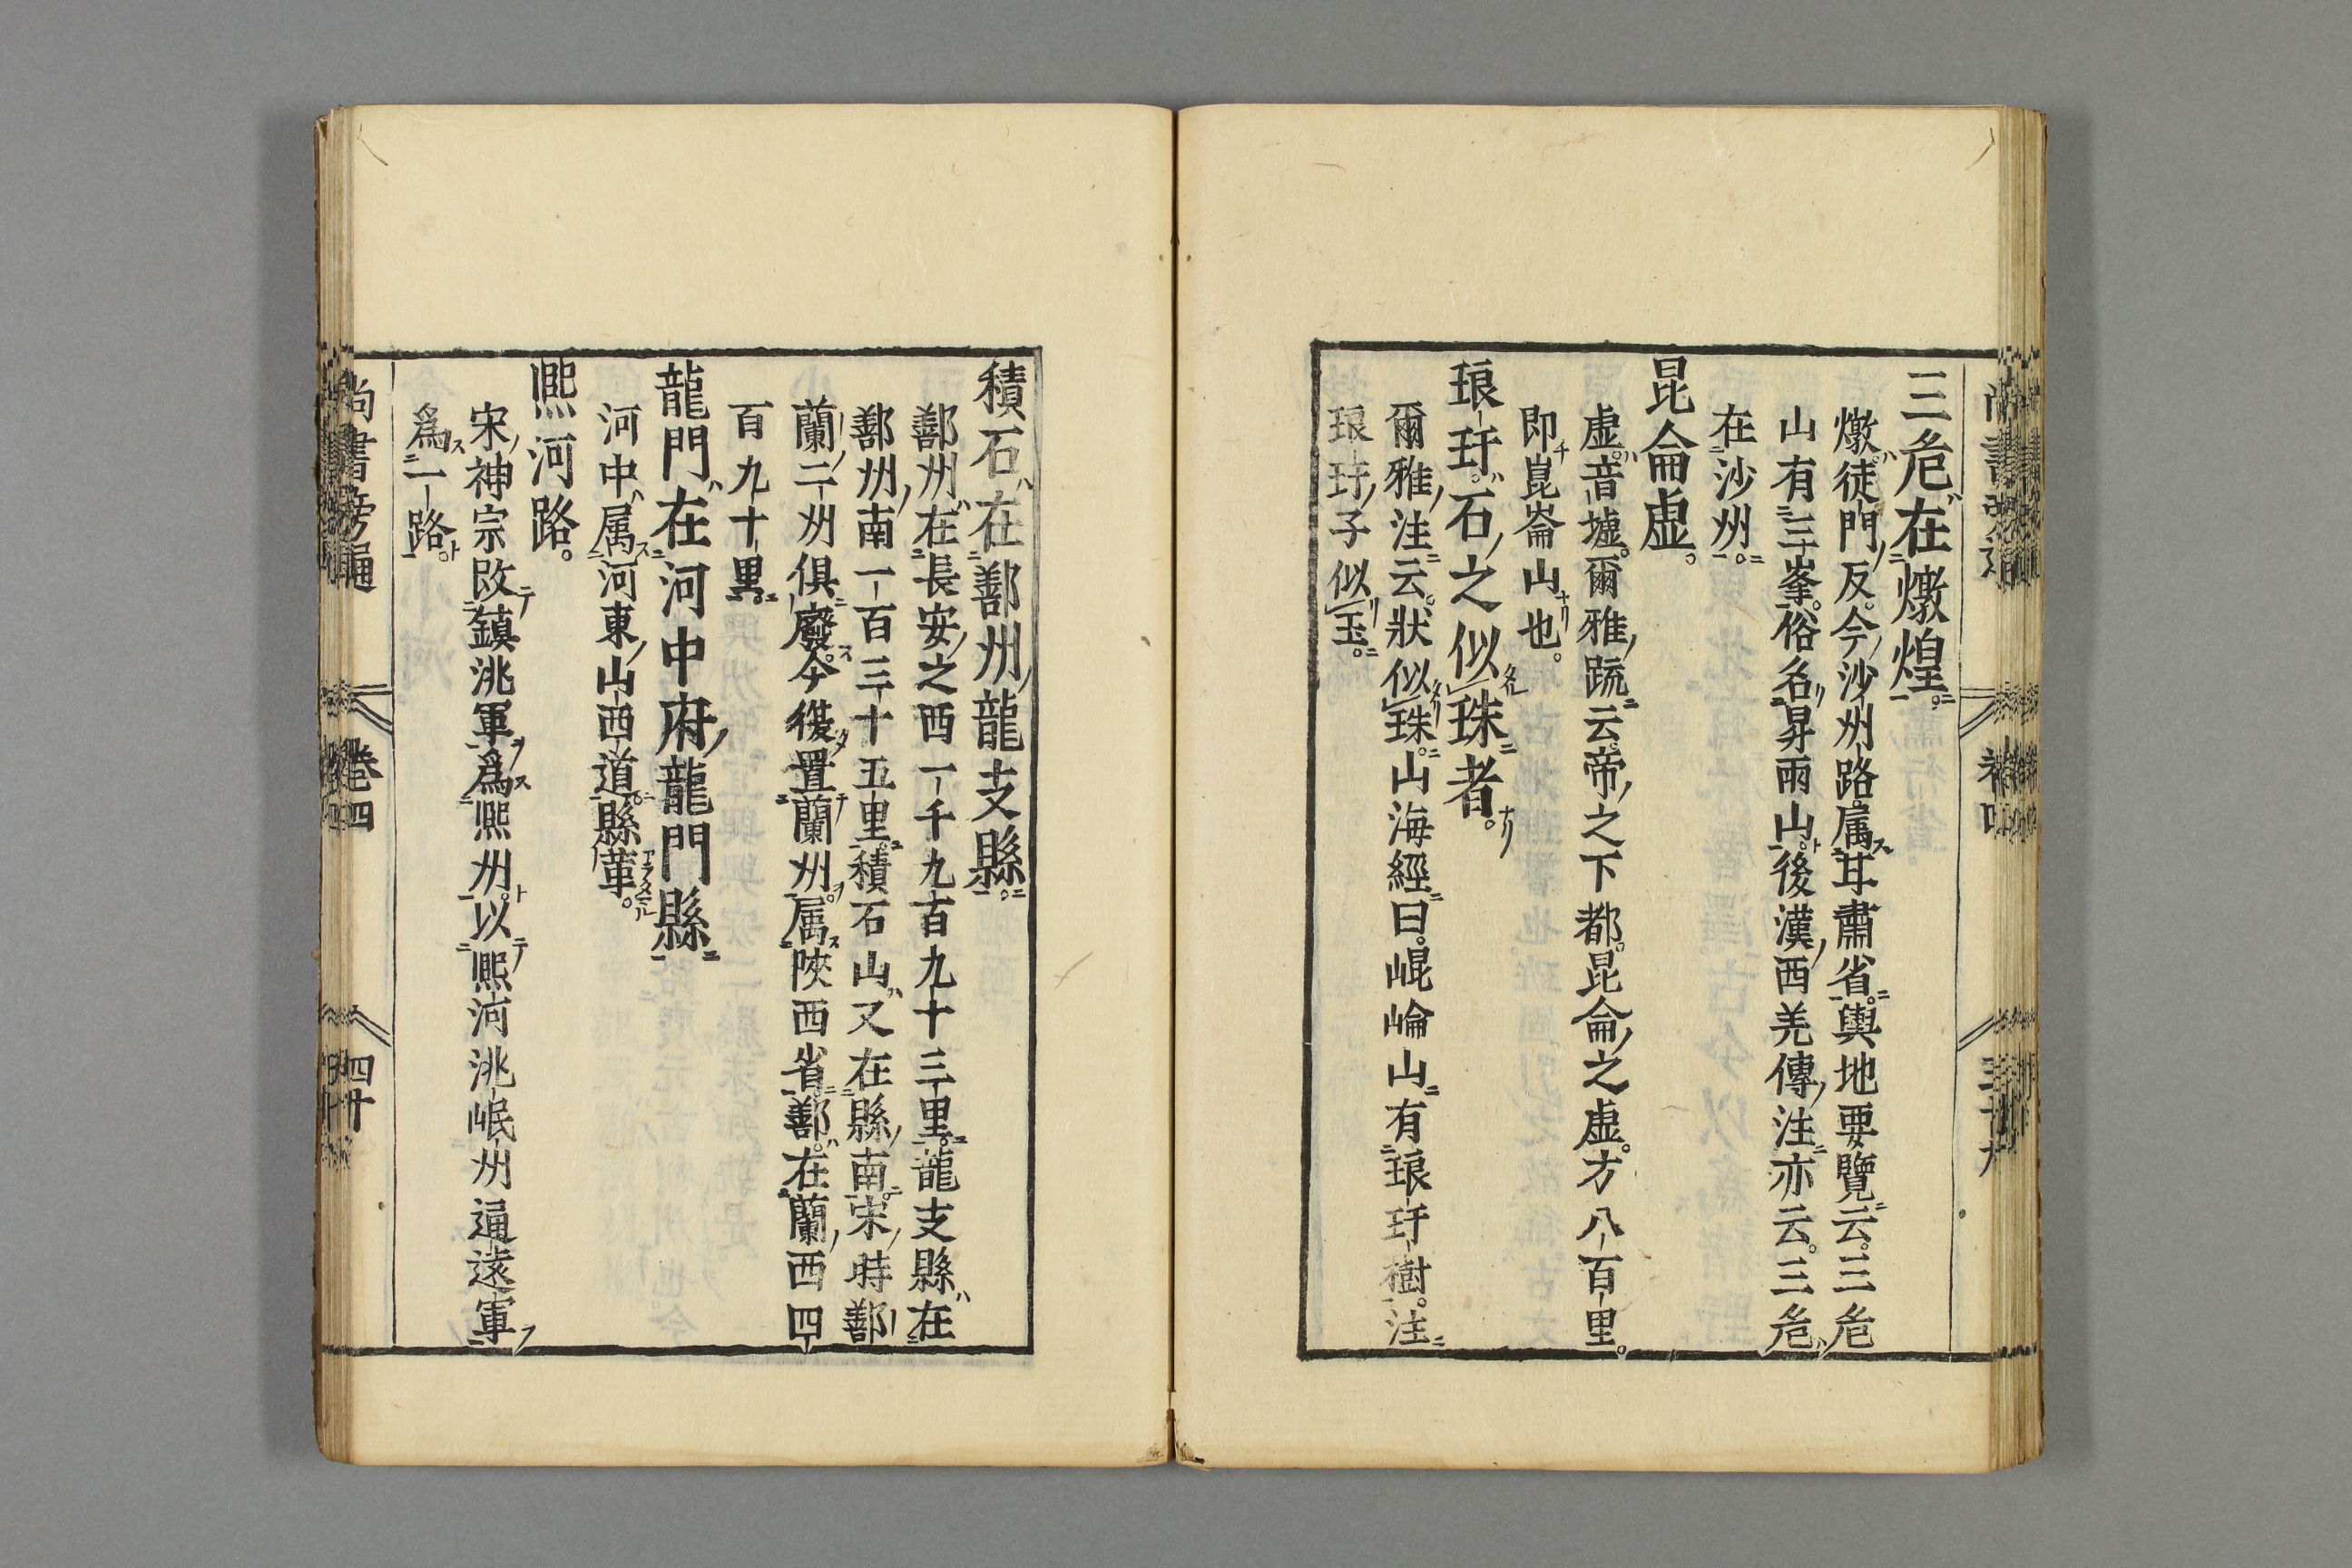 三危在燉煌。
燉徒門反。今沙州路。属甘肅省。輿地要覽云。三危
山有三峯。俗名昇雨山。後漢西羌傳注亦云。三危
在沙州。
昆侖虛。
虛音墟。爾雅䟽云。帝之下都。昆侖之虛。方八百里。
即崑崙山也。
琅玕。石之似珠者。
爾雅注云。狀似珠。山海經曰。崐崘山有琅玕樹。注
琅玕子似玉。
積石在鄯州龍支縣。
鄯州在長安之西一千九百九十三里。龍支縣在
鄯州南一百三十五里。積石山又在縣南。宋時鄯
蘭二州俱廢。今復置蘭州。属陝西省。鄯在蘭西四
百九十里。
龍門在河中府龍門縣
河中属河東山西道。縣革。
熙河路。
宋神宗改鎮洮軍爲熙州。以熙河洮岷州通遠軍
爲一路。
尚書旁通
卷四
四十